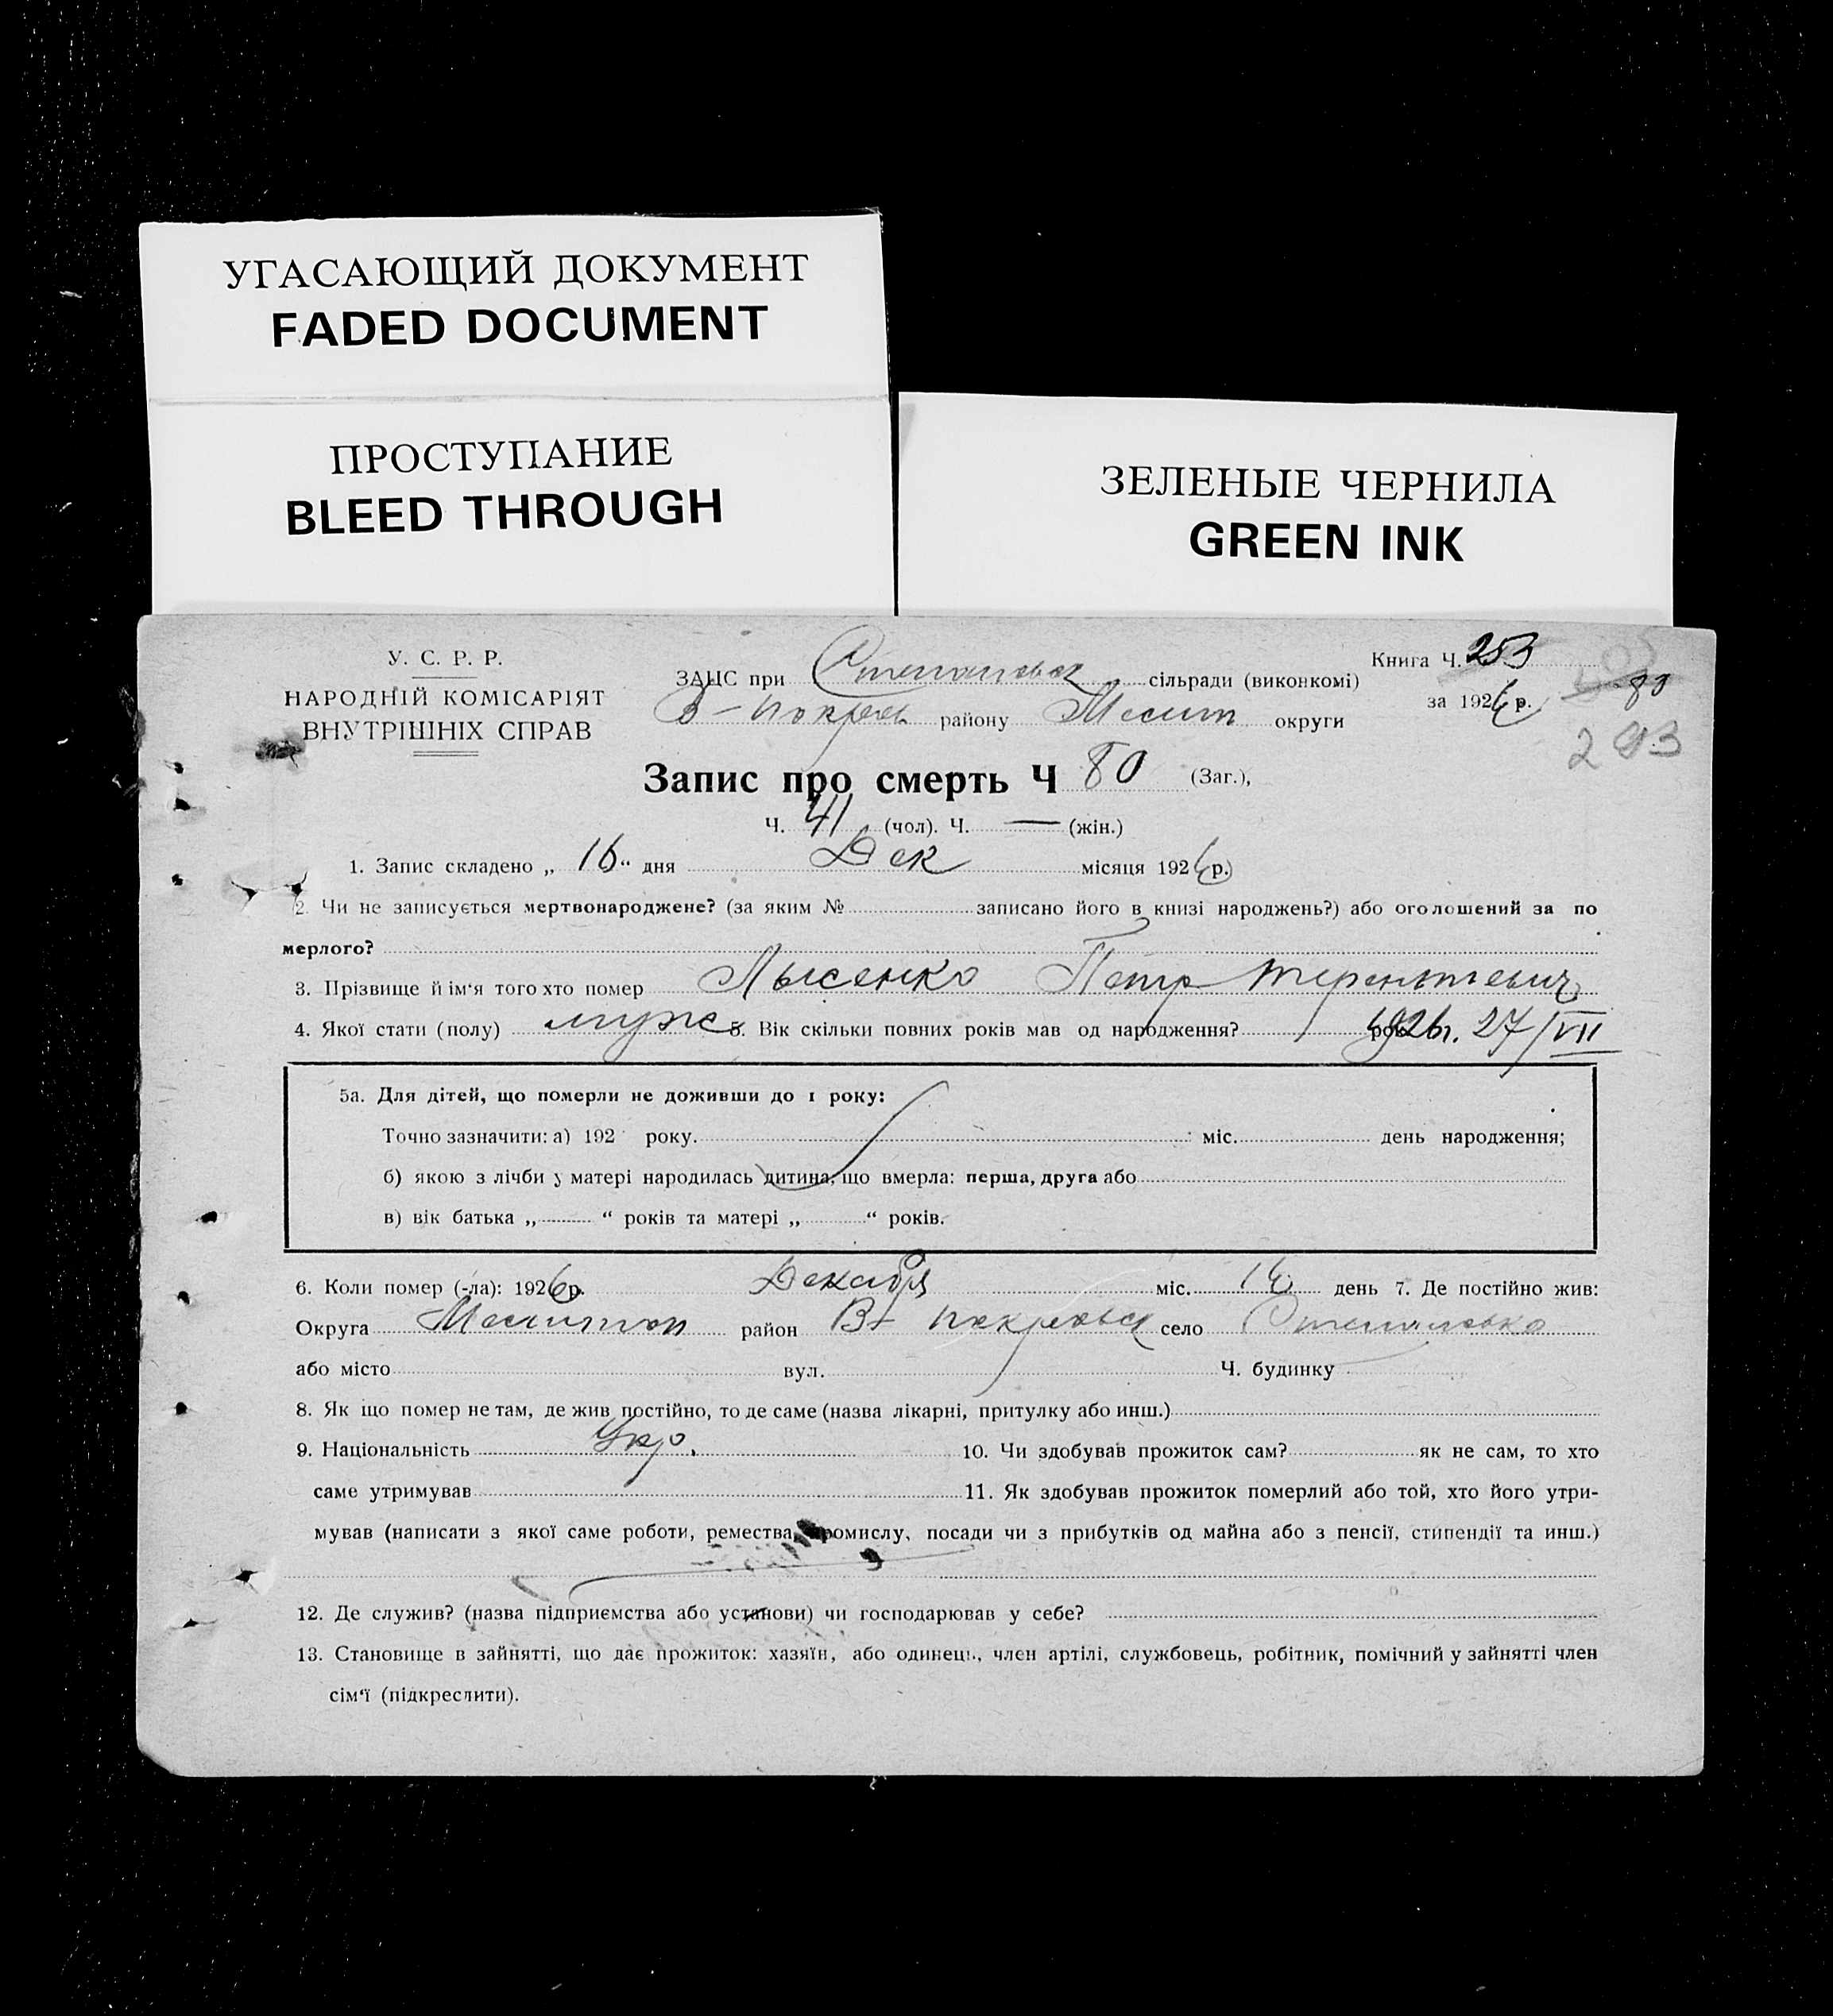 УГАСАЮЩИЙ ДОКУМЕНТ
FADED DOCUMENT
ПРОСТУПАНИЕ
BLEED THROUGH
ЗЕЛЕНЫЕ ЧЕРНИЛА
GREEN INK
У. С. Р. Р.
НАРОДНІЙ КОМІСАРІЯТ
ВНУТРІШНІХ СПРАВ
ЗАЦС при Степановск сільради (виконкомі)
В-Покров району Мелит округи
Книга Ч. 253
за 1926 р.
80
293
Запис про смерть Ч 80 (Заг.),
Ч. 41 (чол). Ч. — (жін.)
1. Запис складено „ 16 “ дня Дек місяця 1926 р.
2. Чи не записується мертвонароджене? (за яким № записано його в книзі народжень?) або оголошений за по
мерлого?
3. Прізвище й ім'я того хто помер Лысенко Петр Терентьевич
4. Якої стати (полу) муж 5. Вік скільки повних років мав од народження? рок 1926г. 27/VII
5а. Для дітей, що померли не доживши до 1 року:
Точно зазначити: а) 192 року. міс. день народження;
б) якою з лічби у матері народилась дитина, що вмерла: перша, друга або
в) вік батька „ “ років та матері „ “ років.
6. Коли помер (-ла): 1926 р. Декабря міс. 16 день 7. Де постійно жив:
Округа Мелитоп район В+ Покровск село Степановка
або місто вул. Ч. будинку
8. Як що помер не там, де жив постійно, то де саме (назва лікарні, притулку або инш.)
9. Національність Укр. 10. Чи здобував прожиток сам? як не сам, то хто
саме утримував 11. Як здобував прожиток померлий або той, хто його утри-
мував (написати з якої саме роботи, ремества, промислу, посади чи з прибутків од майна або з пенсії, стипендії та инш.)
12. Де служив? (назва підприємства або установи) чи господарював у себе?
13. Становище в зайнятті, що дає прожиток: хазяїн, або одинець, член артілі, службовець, робітник, помічний у зайнятті член
сім'ї (підкреслити).